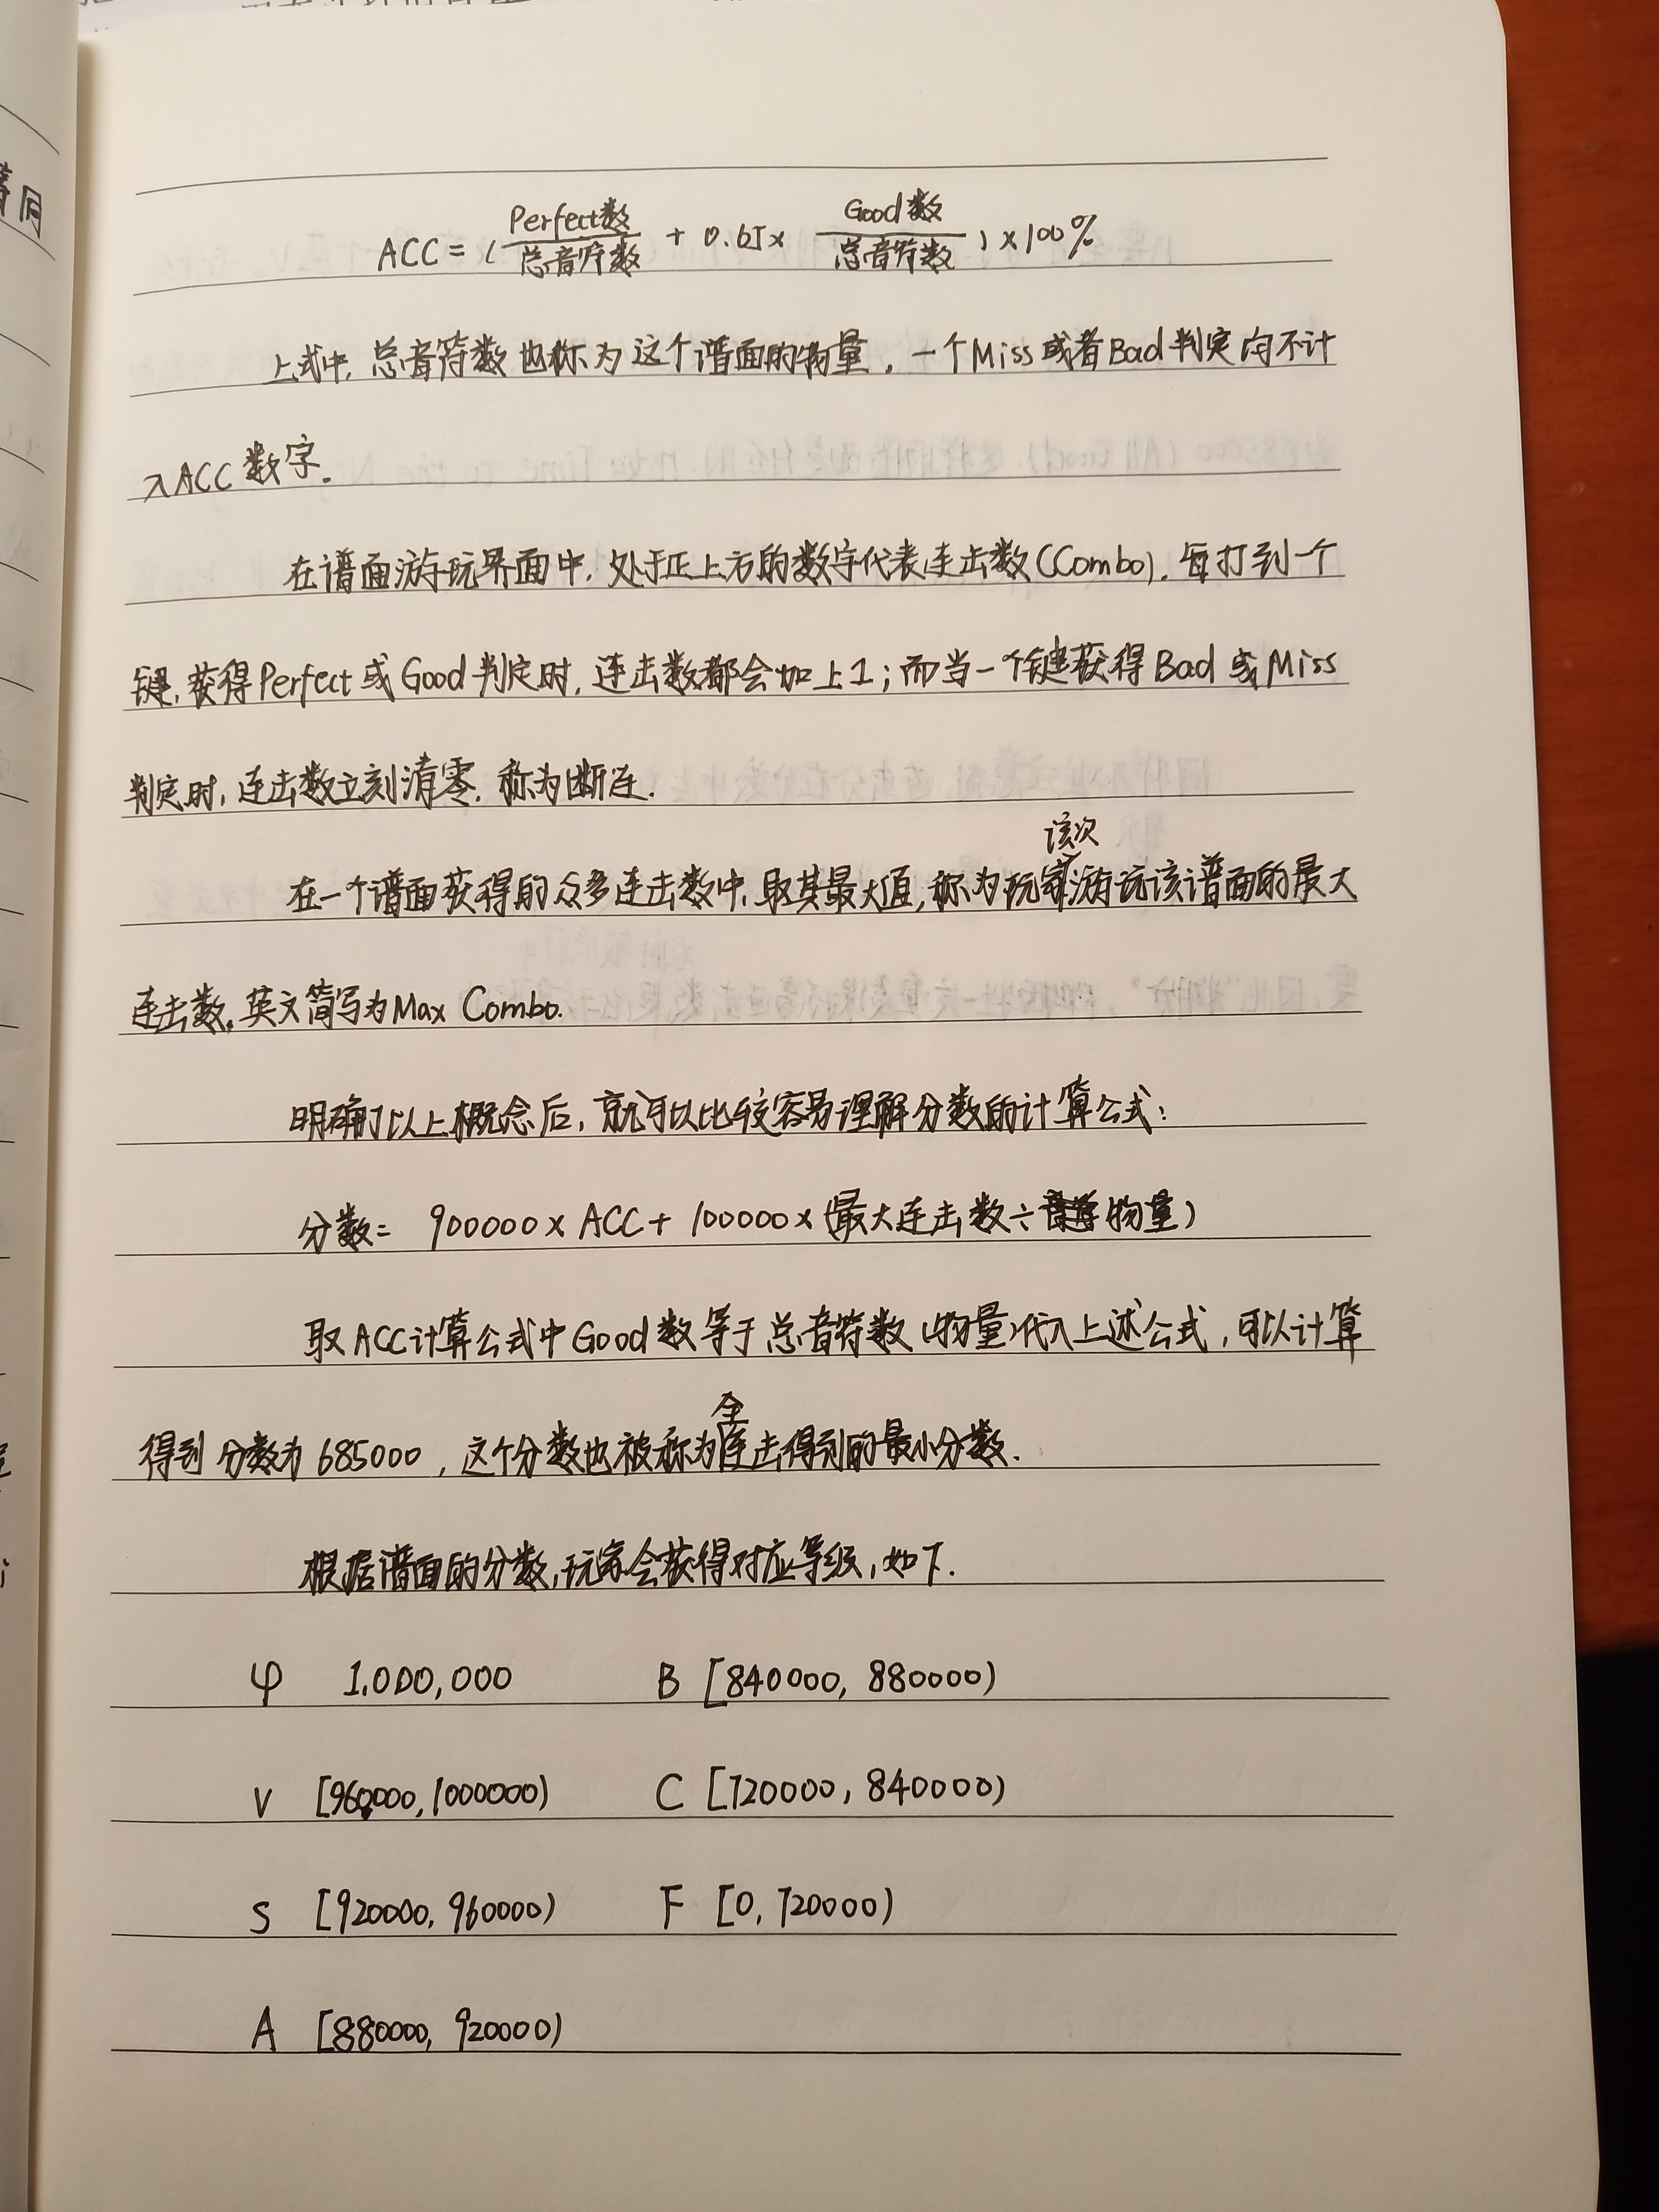 ACC = ( Perfect数/总音符数 + 0.65 × Good数/总音符数 ) × 100%
上式中, 总音符数也称为这个谱面的物量, 一个Miss或者Bad判定均不计
入ACC数字.
在谱面游玩界面中, 处于正上方的数字代表连击数(Combo). 每打到一个
键, 获得Perfect或Good判定时, 连击数都会加上1; 而当一个键获得Bad或Miss
判定时, 连击数立刻清零, 称为断连.
在一个谱面获得的众多连击数中, 取其最大值, 称为玩家该次游玩该谱面的最大
连击数, 英文简写为Max Combo.
明确了以上概念后, 就可以比较容易理解分数的计算公式:
分数= 900000 × ACC + 100000 × (最大连击数÷物量)
取ACC计算公式中Good数等于总音符数(物量)代入上述公式, 可以计算
得到分数为685000, 这个分数也被称为全连击得到的最小分数.
根据谱面的分数, 玩家会获得对应等级, 如下.
φ 1,000,000 B [840000, 880000)
V [960000, 1000000) C [720000, 840000)
S [920000, 960000) F [0, 720000)
A [880000, 920000)